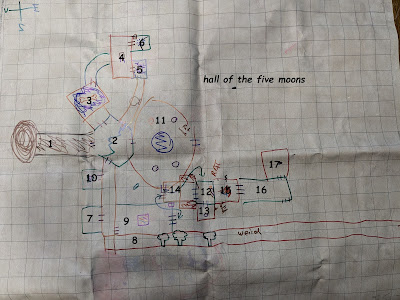 6
4
5
hall of the five moons
3
11
1
2
17
10
RAT
14
12
15
16
13
E
7
9
8
weird